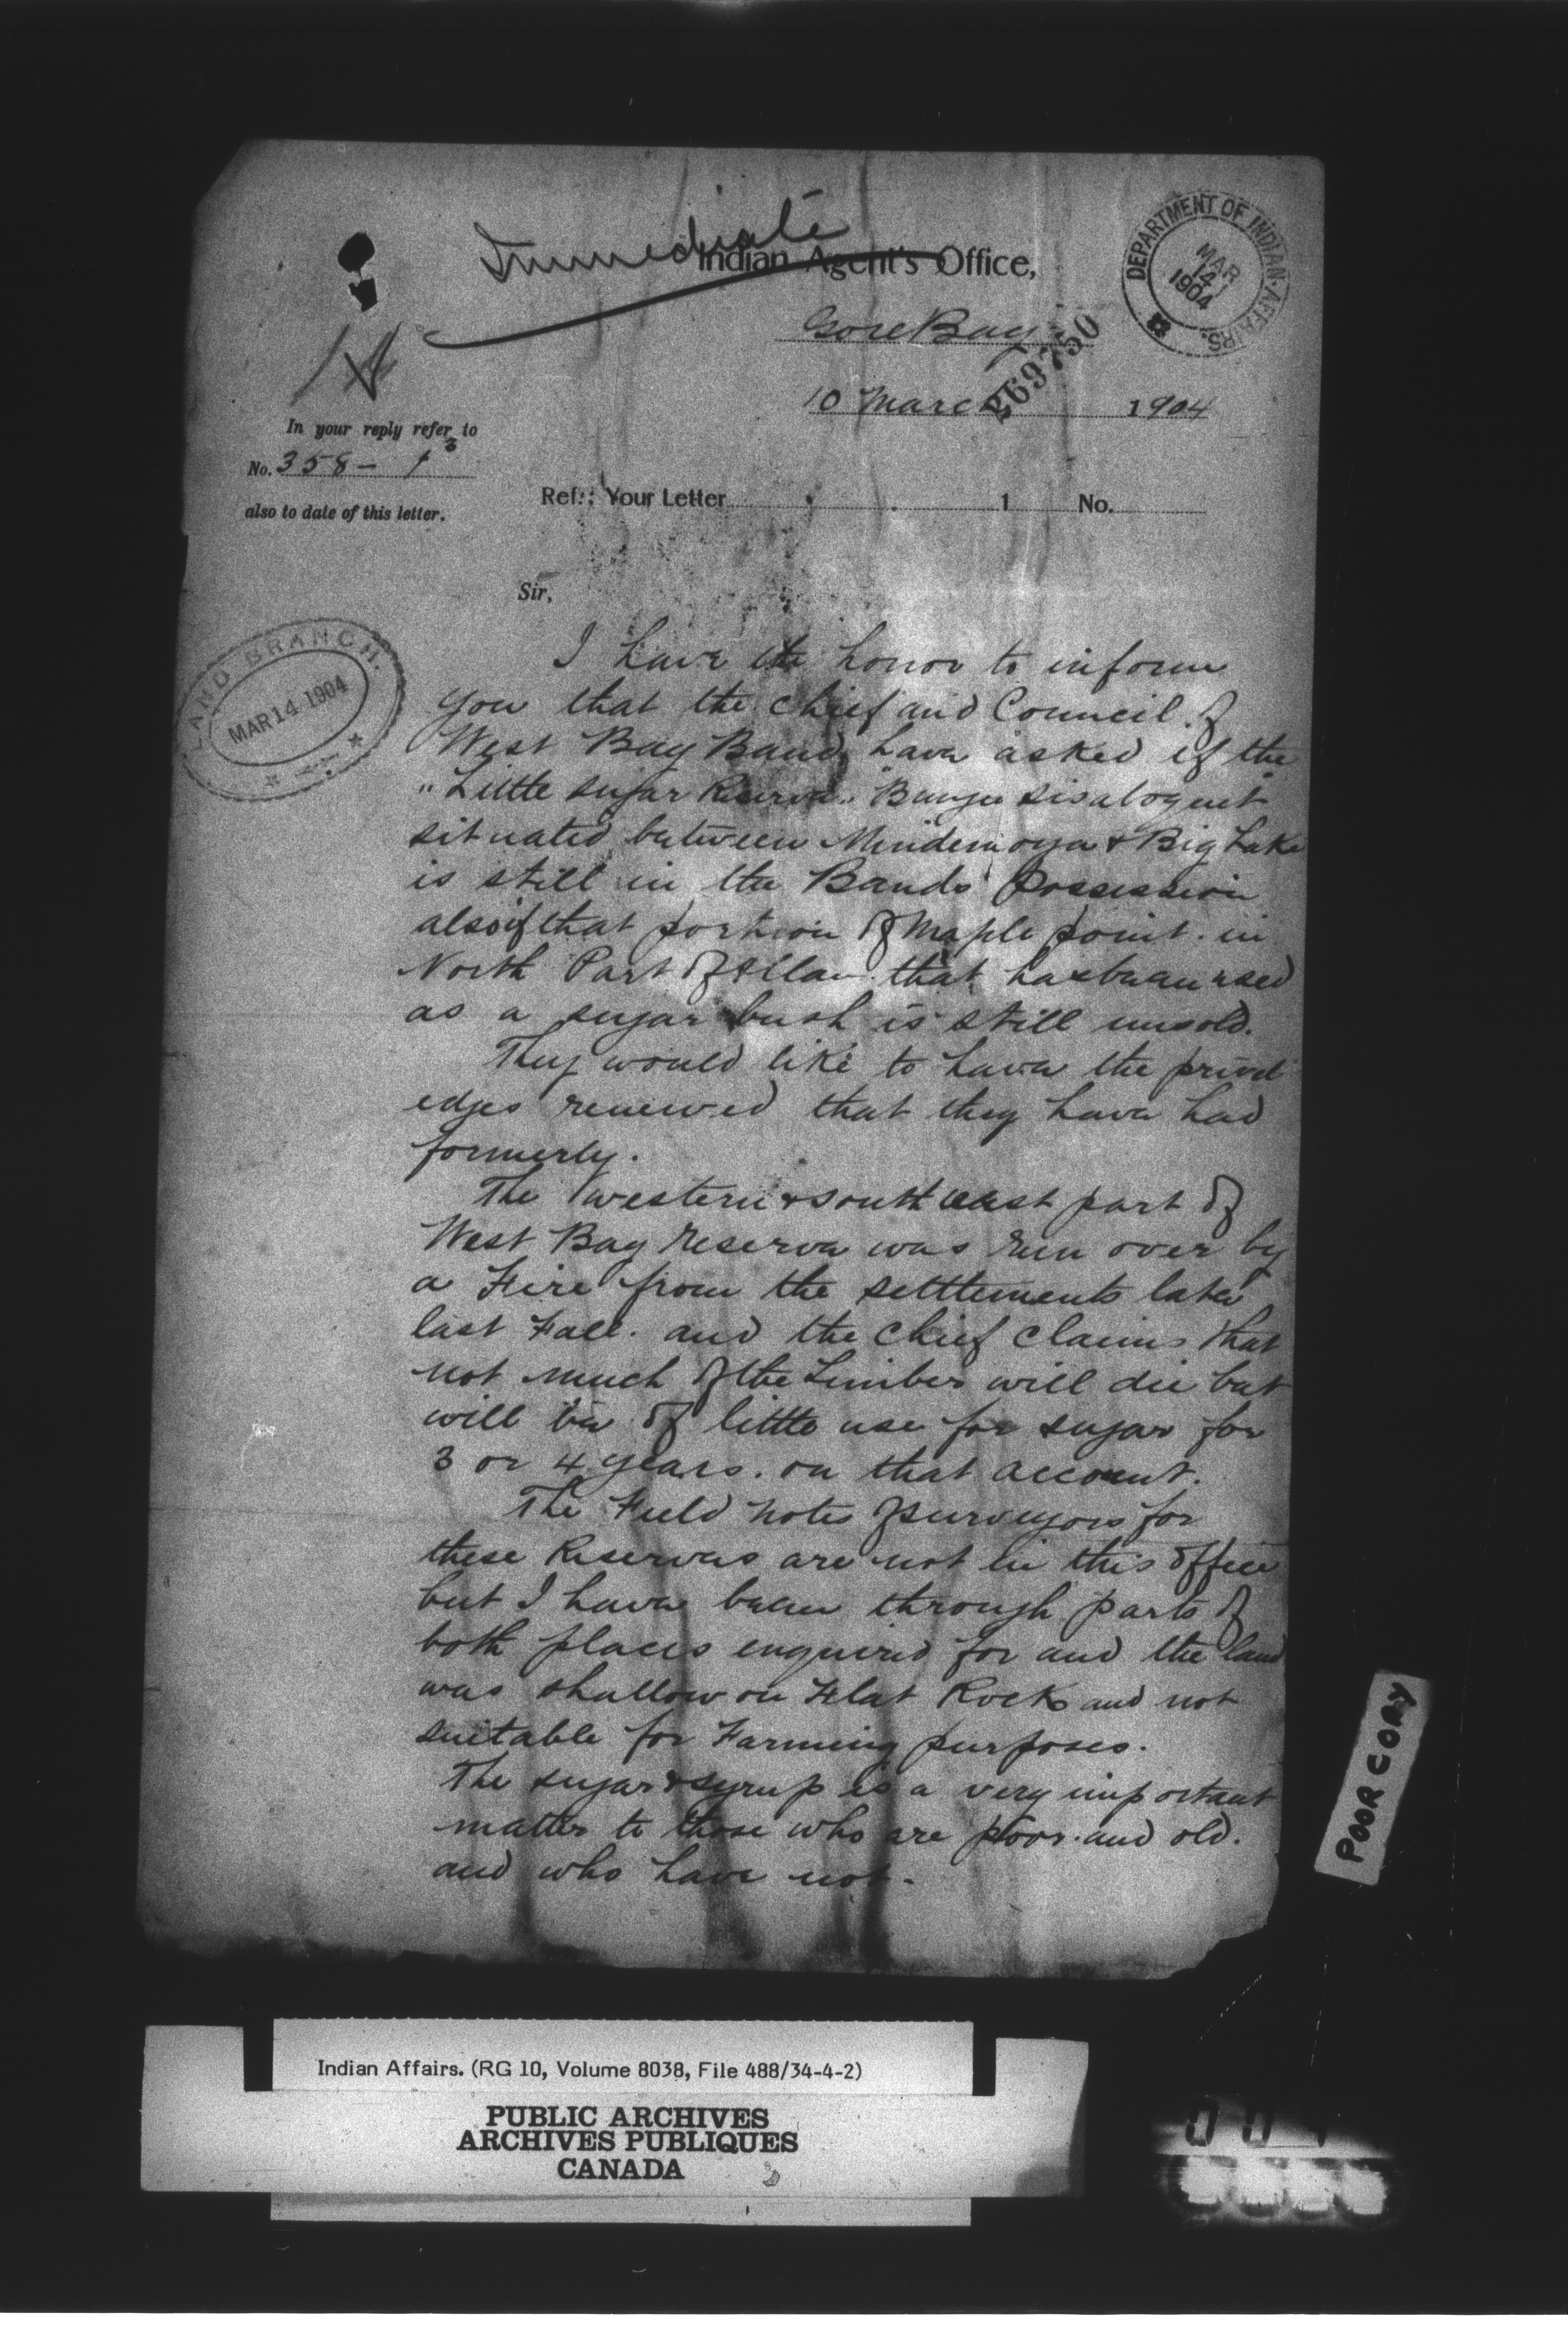 Immediate
Indian Agent's Office,
DEPARTMENT OF INDIAN AFFAIRS.
MAR
14
1904
Gore Bay
269750
10 March 1904
In your reply refer to
No. 358 - 1 3
also to date of this letter.
Ref.: Your Letter 1 No.
Sir,
LAND BRANCH.
MAR 14 1904
I have the honor to inform
you that the Chief and Council of
West Bay Band have asked if the
"Little sugar Reserve"
situated between Mindemoya & Big Lake
is still in the Bands' possession
also if that portion of Maple point in
North Part of Allan that has been used
as a sugar bush is still unsold.
They would like to have the privel
edges renewed that they have had
formerly.
The western & south east part of
West Bay Reserve was run over by
a Fire from the settlements late
last Fall. and the Chief claims that
not much of the Timber will die but
will be of little use for sugar for
3 or 4 years. on that account.
The Field notes of surveyors for
these Reserves are not in this office
but I have been through parts of
both places enquired for and the land
was shallow on Flat Rock and not
suitable for Farming purposes.
The sugar & syrup is a very important
matter to those who are poor and old.
and who have not.
POOR COPY
Indian Affairs. (RG 10, Volume 8038, File 488/34-4-2)
PUBLIC ARCHIVES
ARCHIVES PUBLIQUES
CANADA